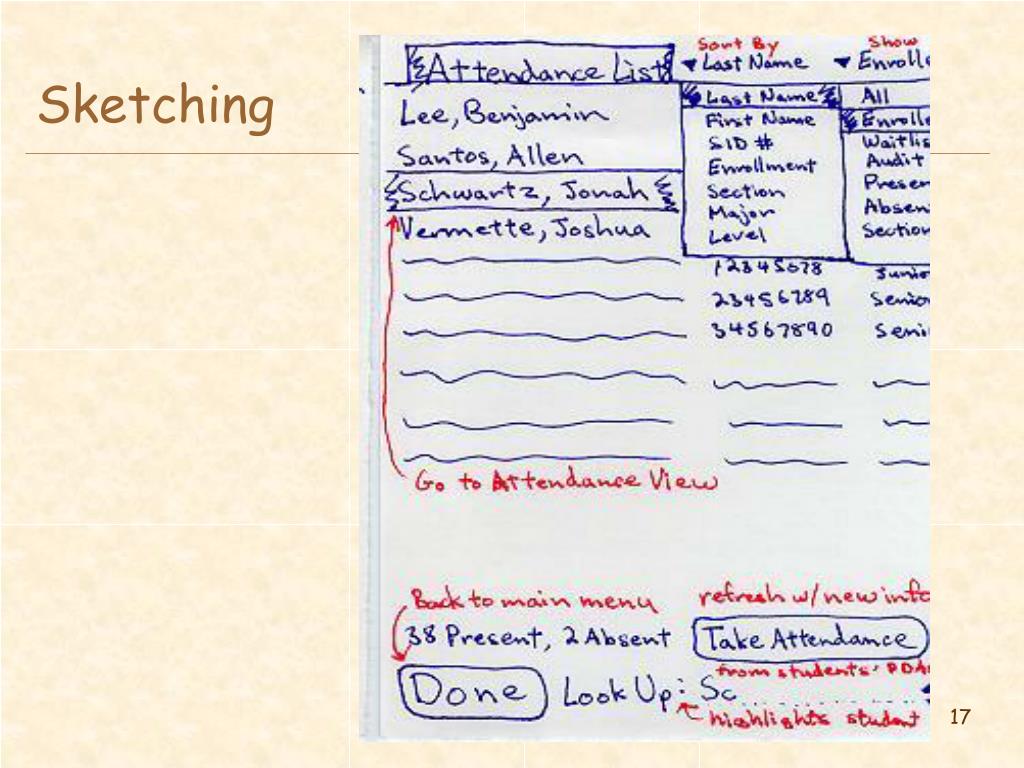 Sketching
Sort By
Show
Attendance List
Last Name
Enrolle
Last Name
All
Lee, Benjamin
First Name
Enrolle
SID #
Waitlis
Santos, Allen
Enrollment
Audit
Schwartz, Jonah
Section
Presen
Major
Absen
Vermette, Joshua
Level
Section
12345678
Junio
23456789
Senio
34567890
Seni
Go to Attendance View
Back to main menu
refresh w/ new info
38 Present, 2 Absent
Take Attendance
from students' PDA
Done
Look Up: Sc
highlights student
17